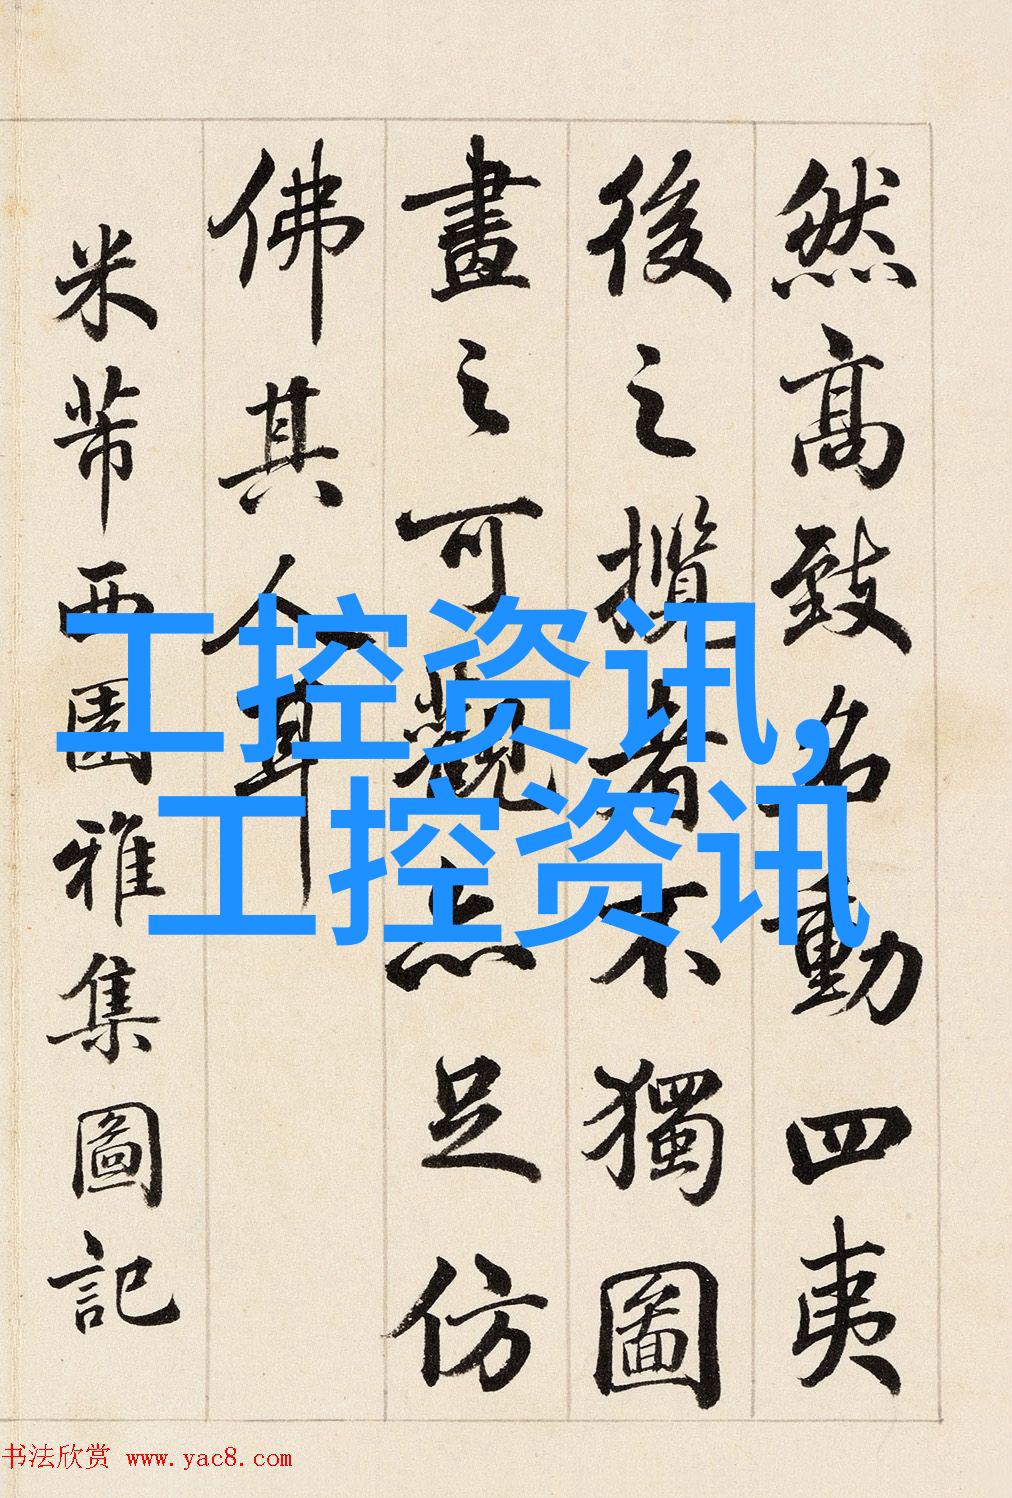 然高致名動四夷
後之攬者不獨圖
畫之可觀亦足仿
佛其人耳
米芾西園雅集圖記
工控资讯,
工控资讯
书法欣赏 www.yac8.com